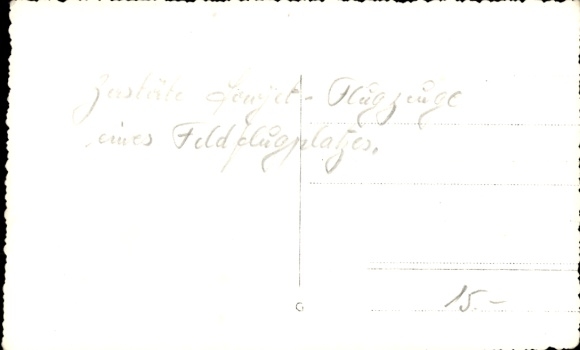 Zerstörte Sowjet-Flugzeuge
eines Feldflugplatzes.
15.-